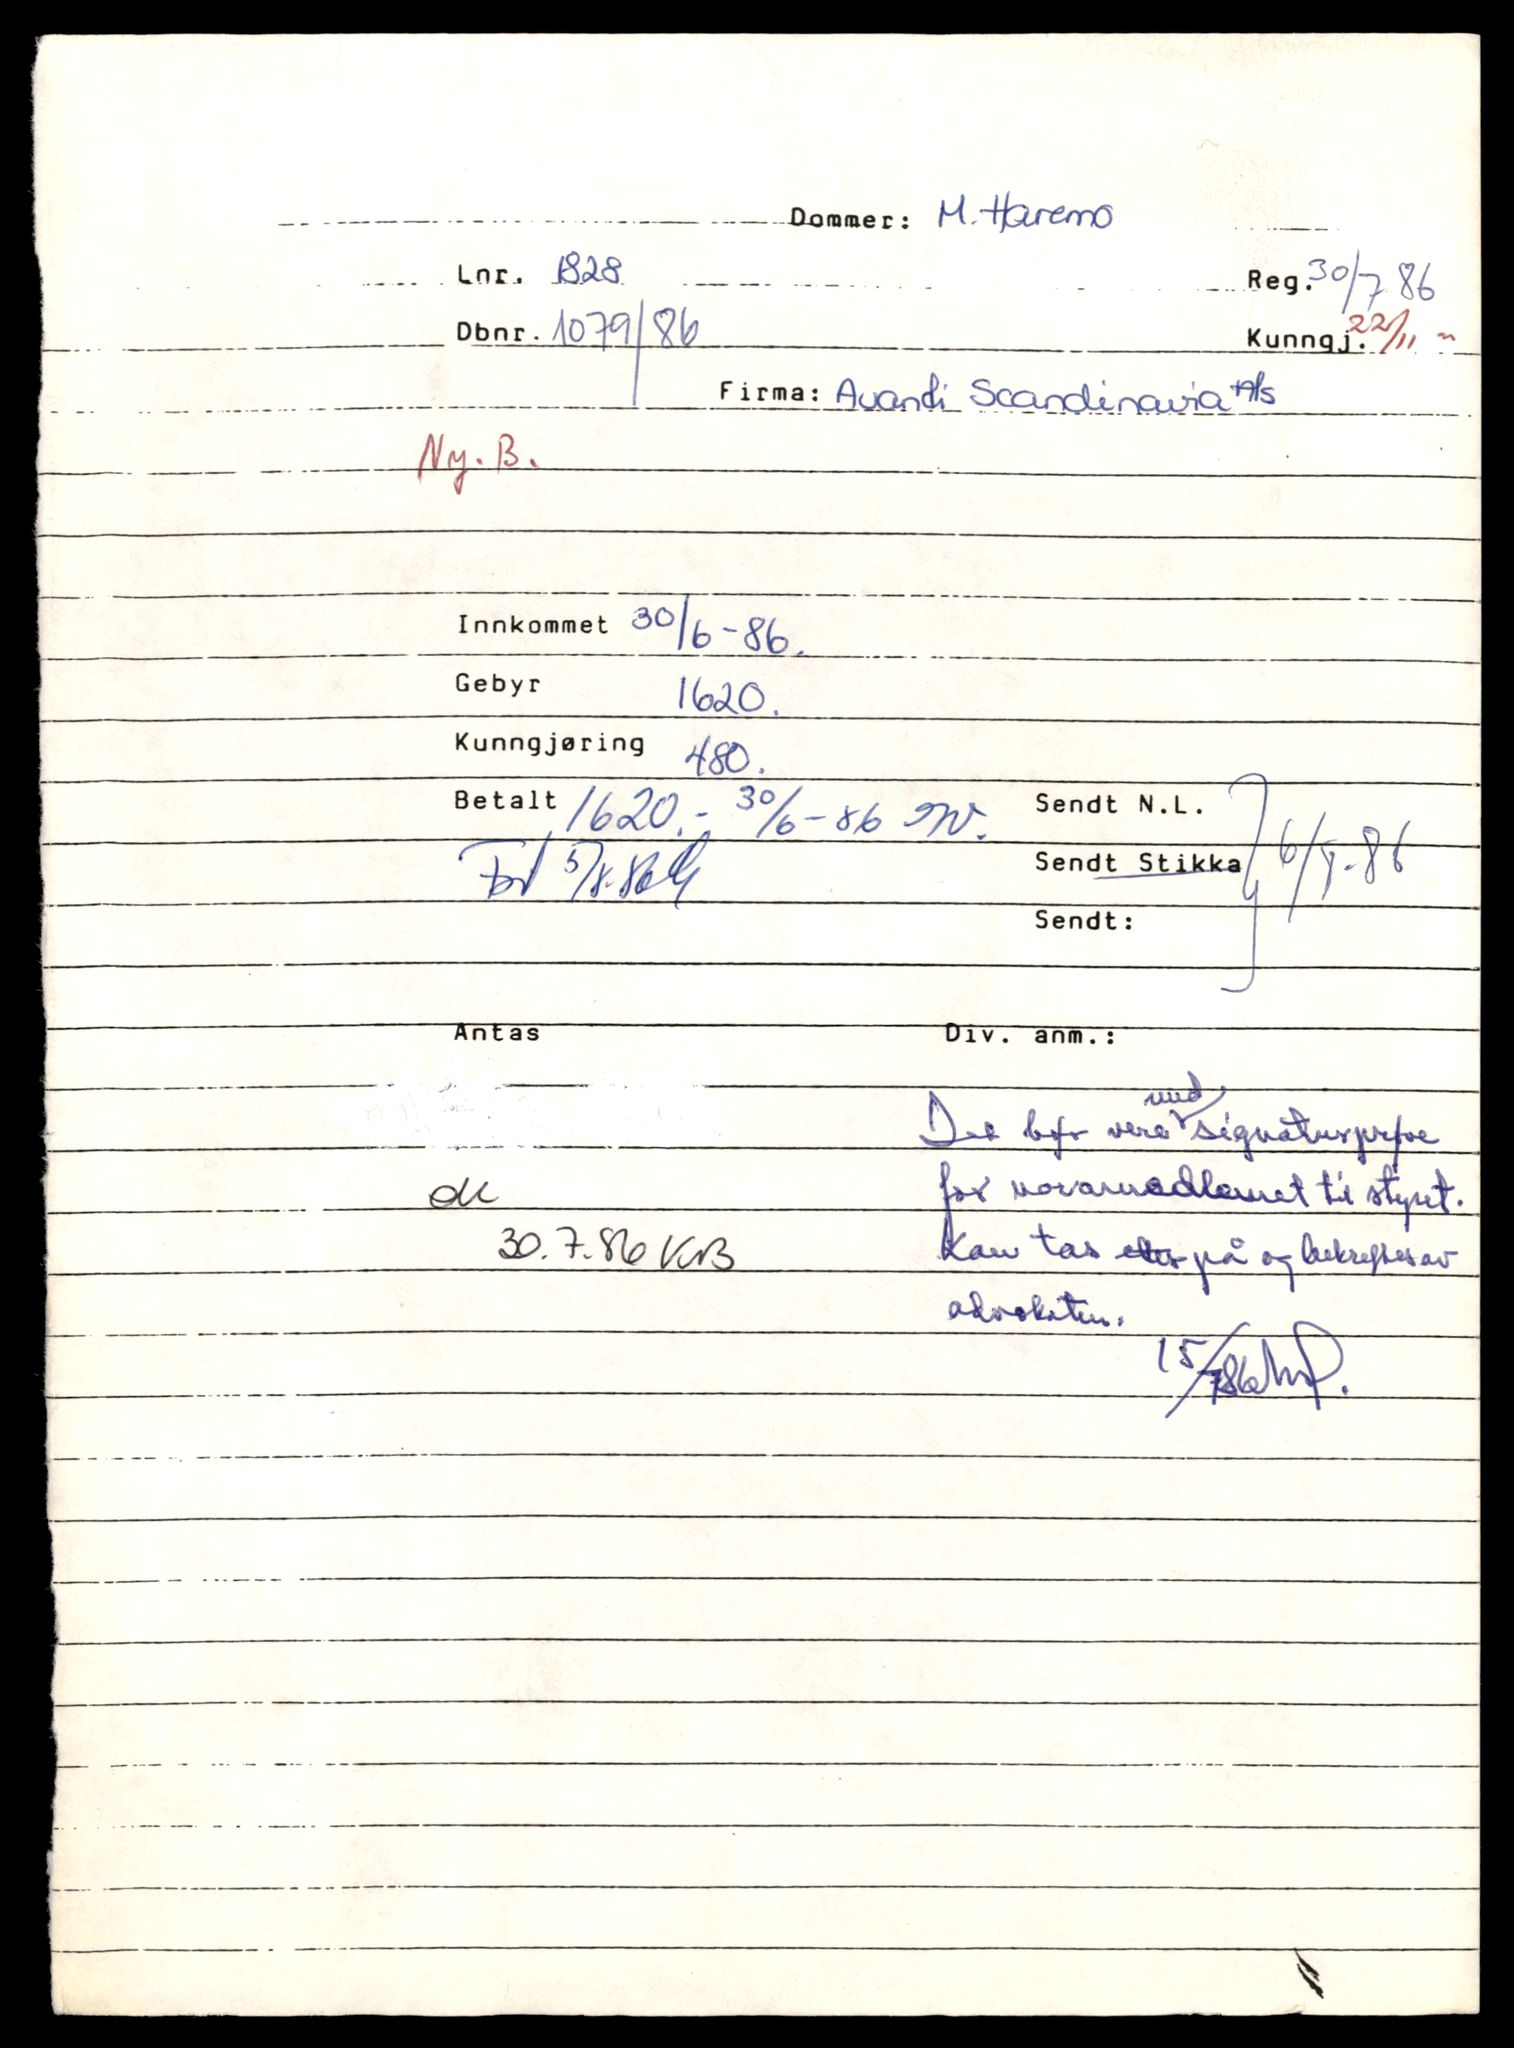 Dommer: M. Haremo
Lnr. 1828
Reg. 30/7 86
Dbnr. 1079/86
Kunngj. 22/11 "
Firma: Avandi Scandinavia A/S
Ny. B.
Innkommet 30/6-86.
Gebyr 1620.
Kunngjøring 480.
Betalt 1620.- 30/6-86
Sendt N.L.
5/8.86
Sendt Stikka 6/8-86
Sendt:
Antas
Div. anm.:
Det bør vere med signaturprøve
for varamedlemet til styret.
ok
30.7.86 KB
Kan tas på og bekreftes av
advokaten.
15/7 86